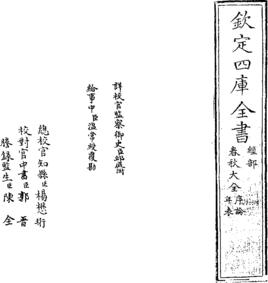 欽定四庫全書
經部
春秋大全 序論
年表
詳校官監察御史臣邱庭澍
給事中臣溫常綬覆勘
總校官知縣臣楊懋珩
校對官中書臣郭晉
謄錄監生臣陳全